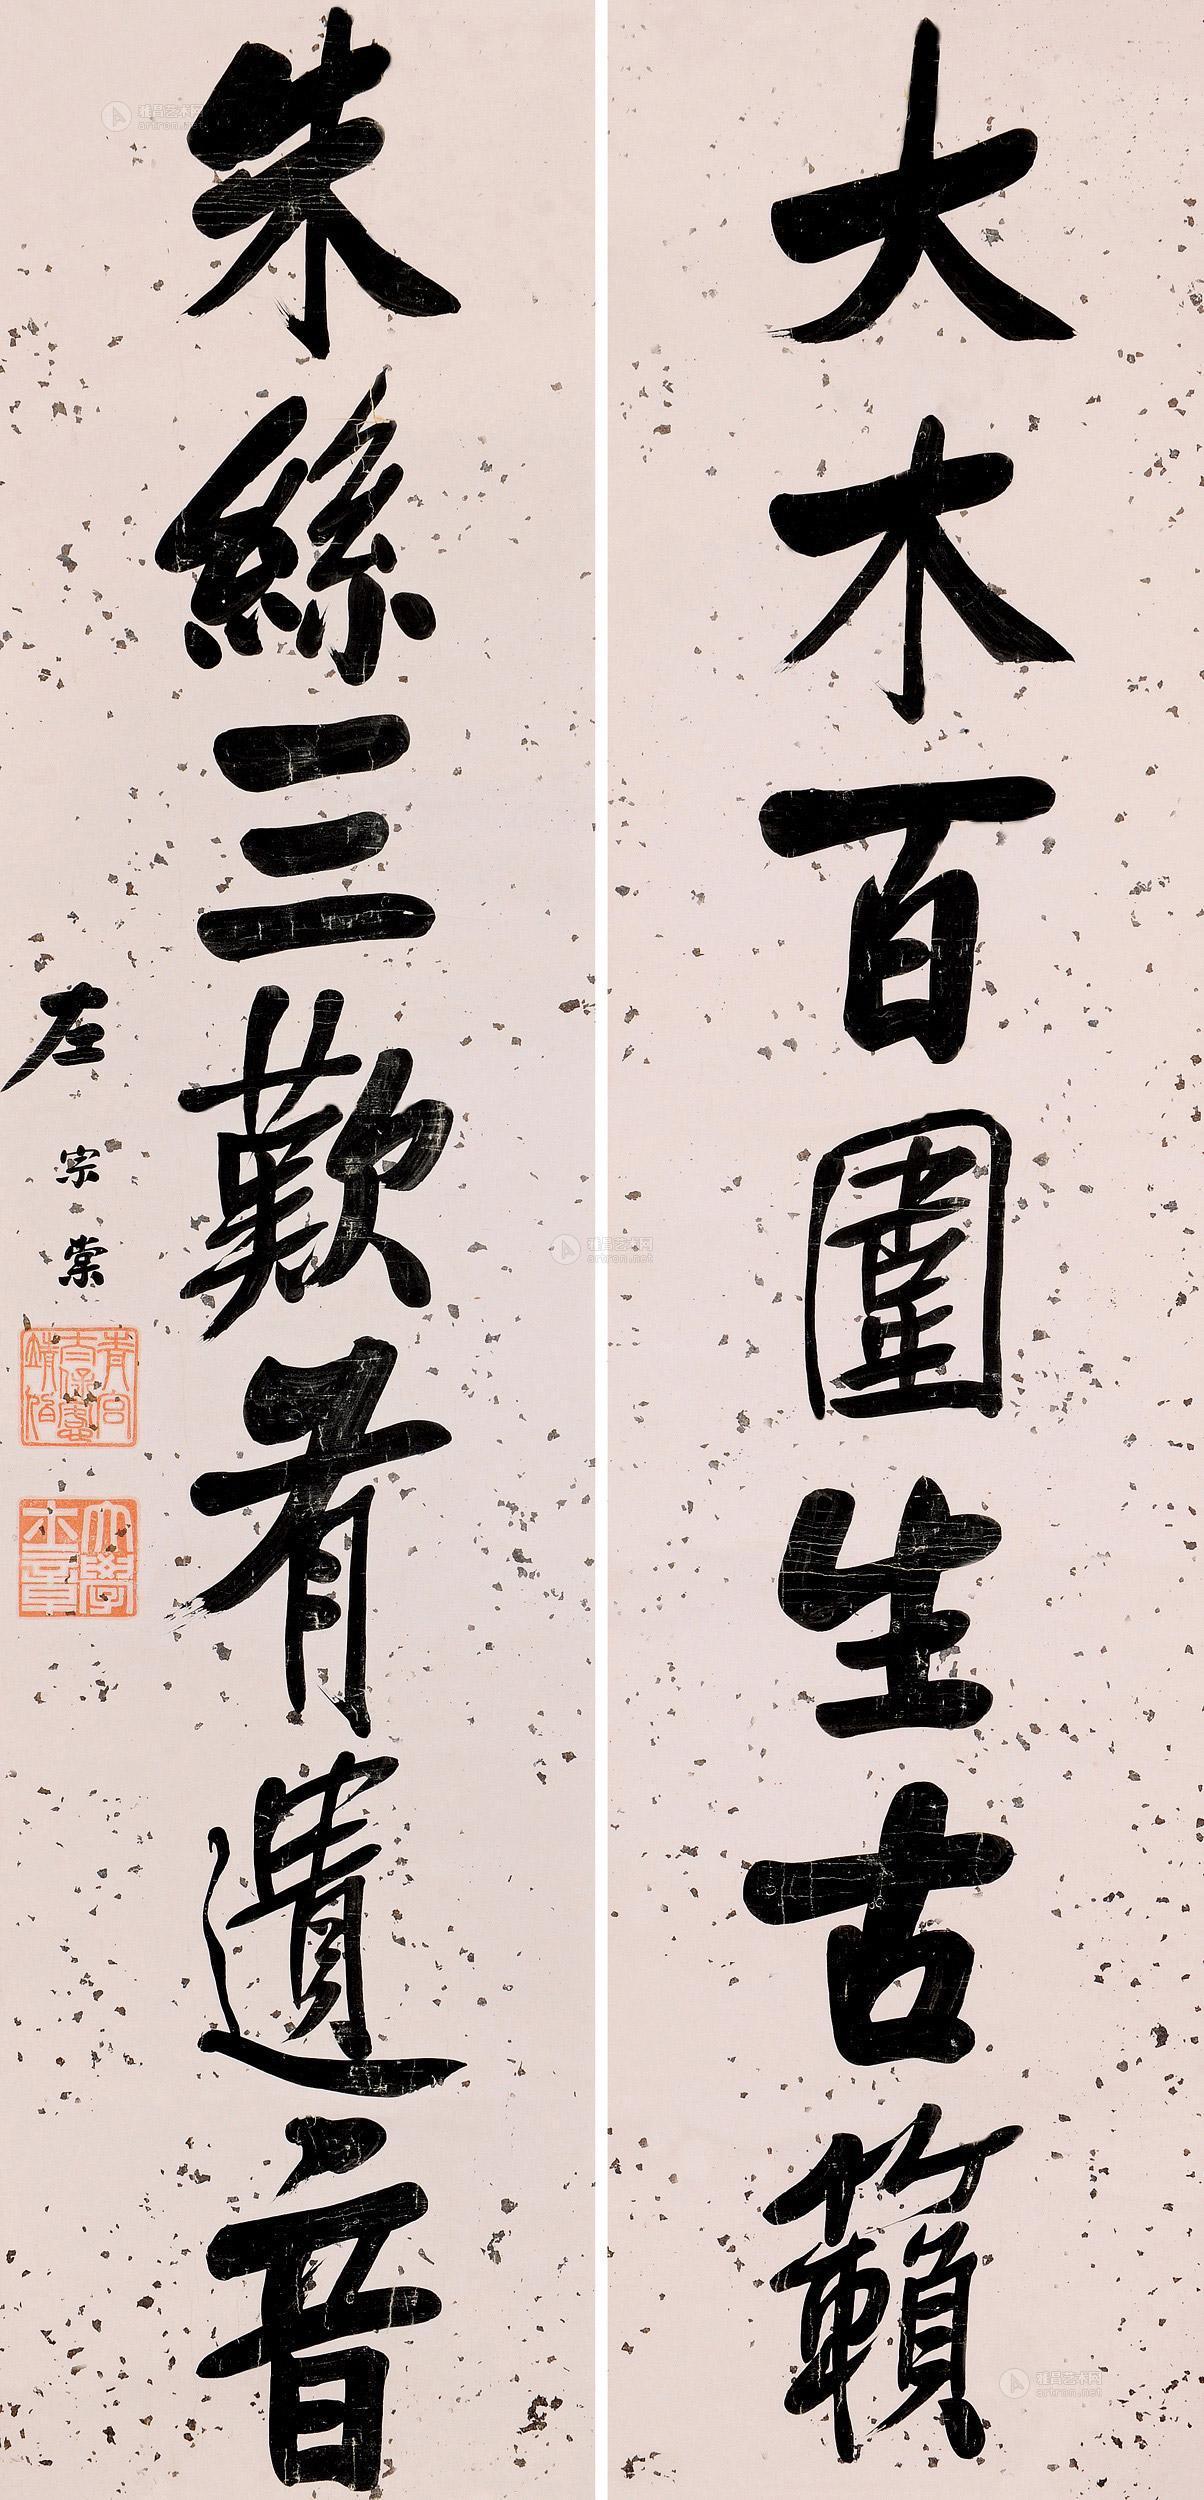 大木百圍生古籟
朱絲三歎有遺音
左宗棠
青宮太保恪靖侯
大學士章
雅昌艺术网
artron.net
雅昌艺术网
artron.net
雅昌艺术网
artron.net